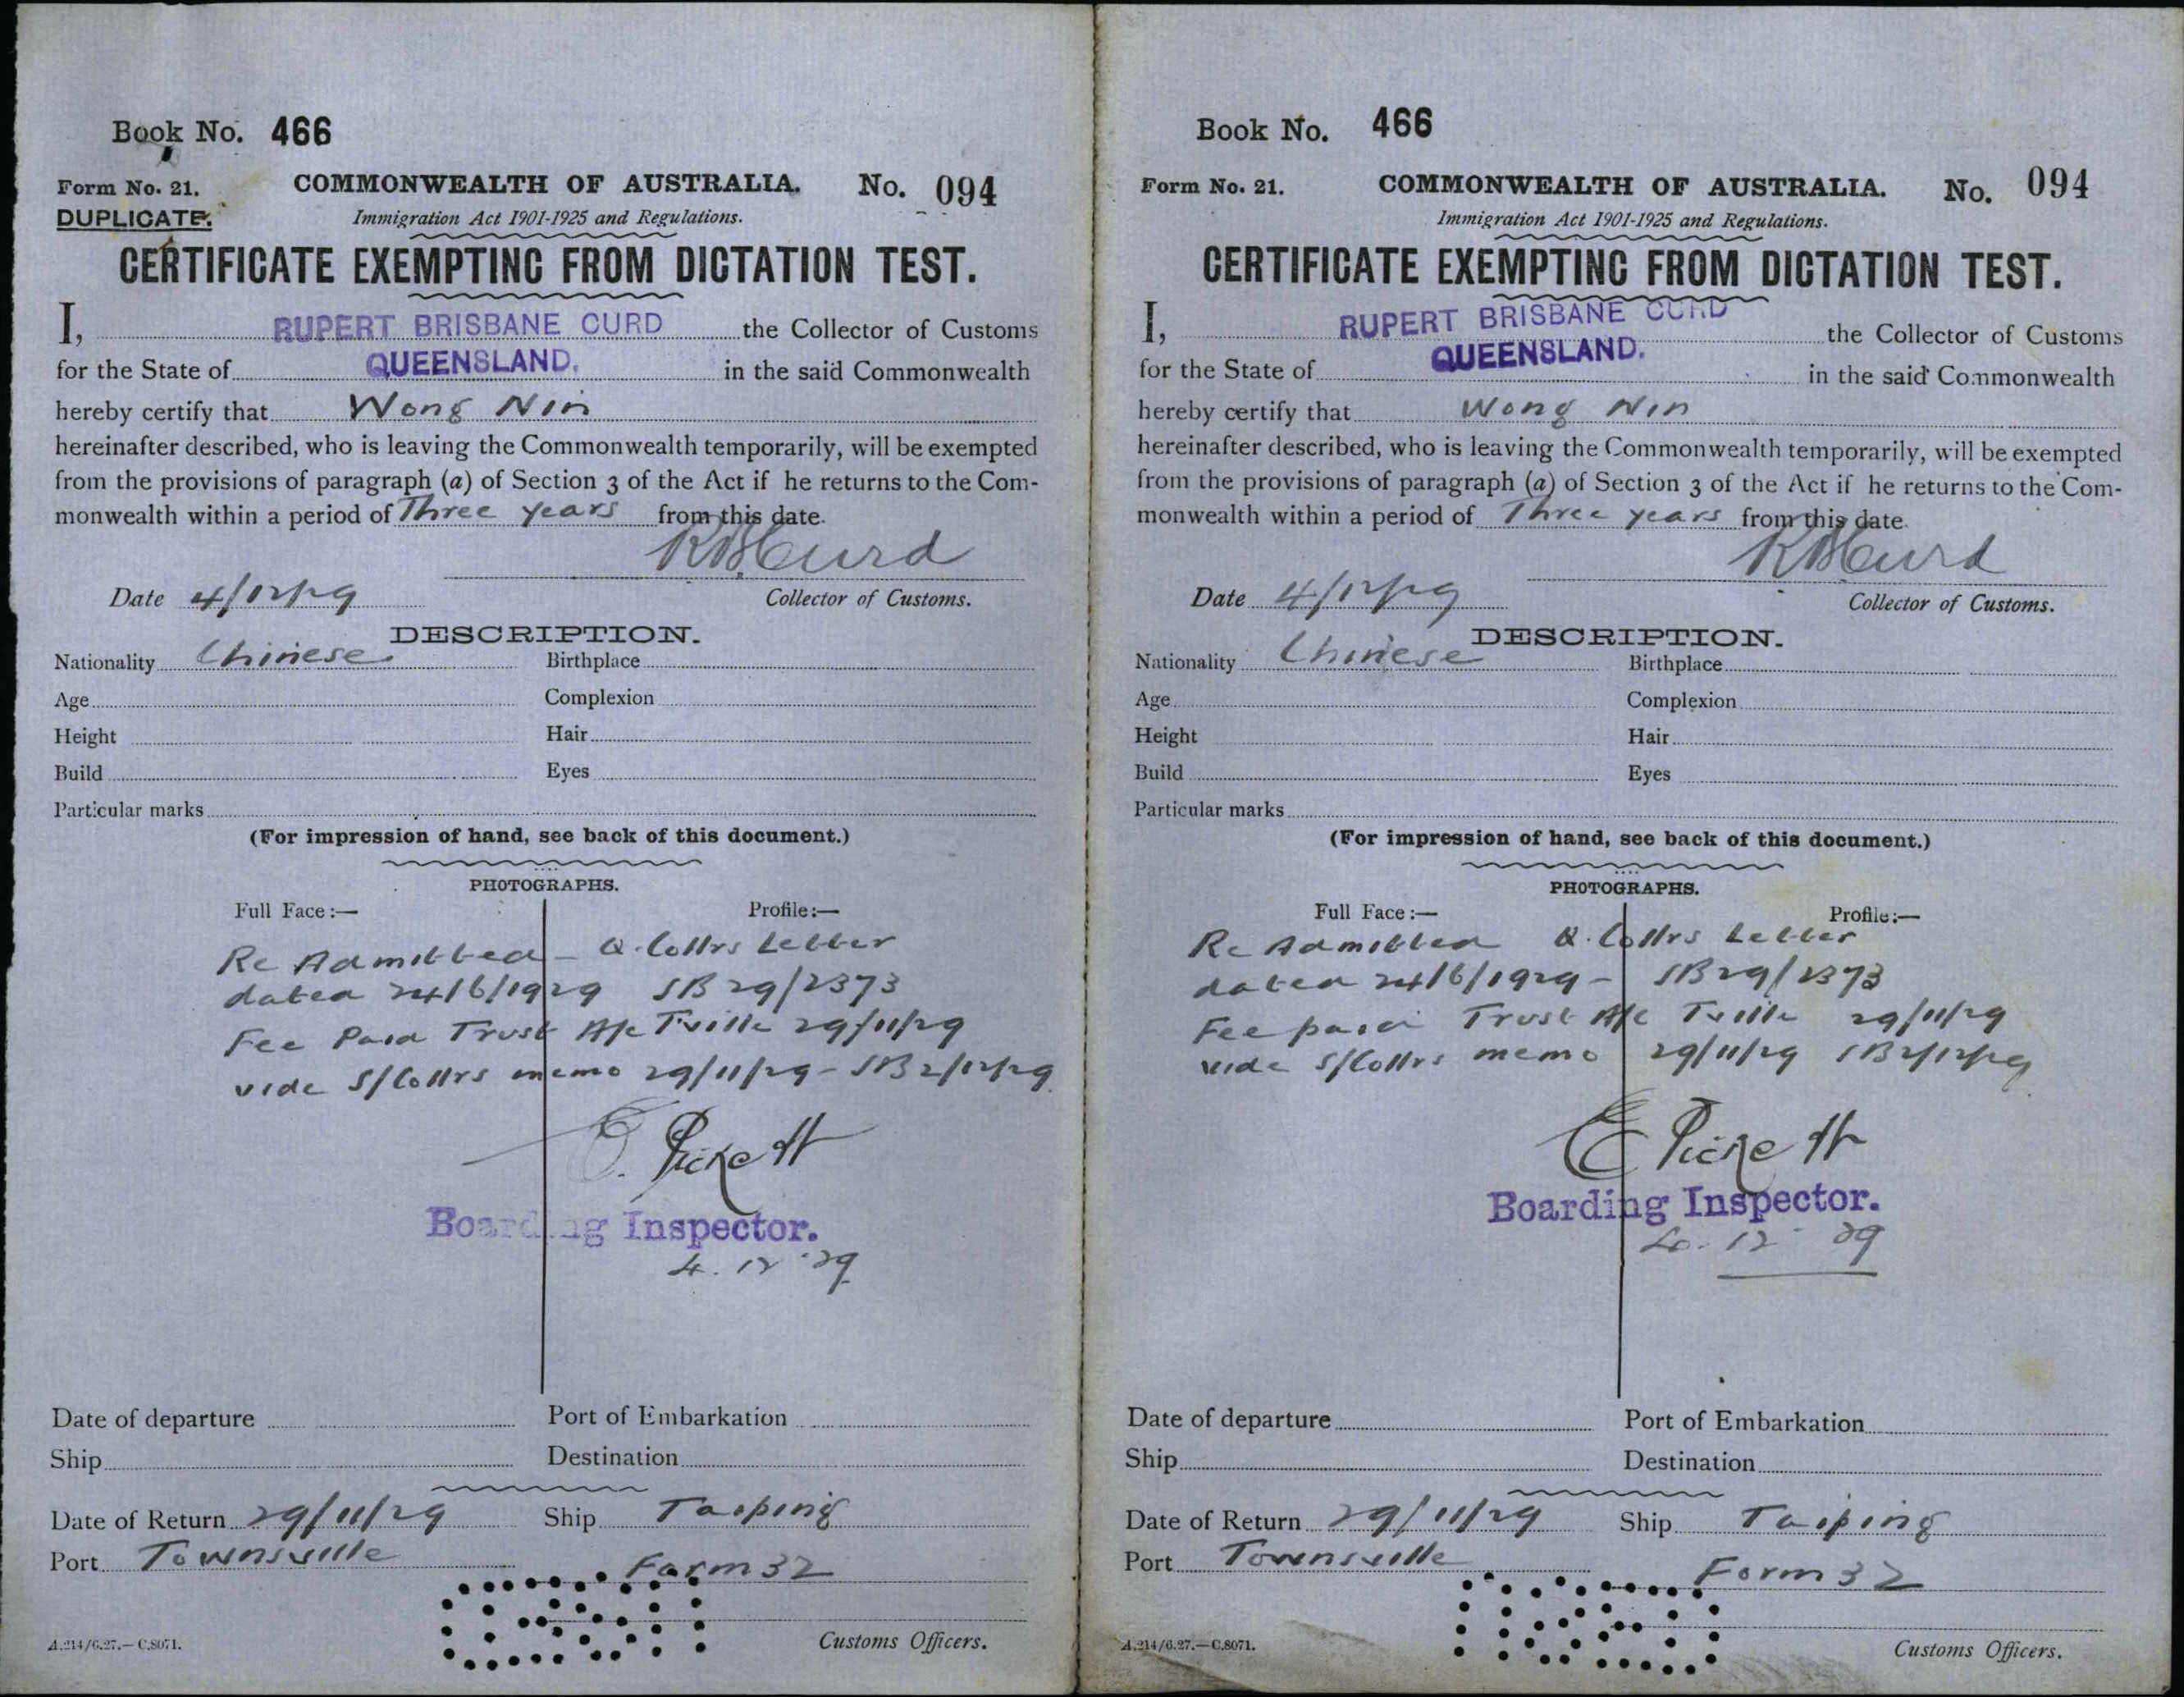 Book No. 466
Form No. 21. COMMONWEALTH OF AUSTRALIA. No. 094
DUPLICATE. Immigration Act 1901-1925 and Regulations.
CERTIFICATE EXEMPTING FROM DICTATION TEST.
I, RUPERT BRISBANE CURD the Collector of Customs
for the State of QUEENSLAND. in the said Commonwealth
hereby certify that Wong Nin
hereinafter described, who is leaving the Commonwealth temporarily, will be exempted
from the provisions of paragraph (a) of Section 3 of the Act if he returns to the Com-
monwealth within a period of Three years from this date.
R B Curd
Date 4/12/29 Collector of Customs.
DESCRIPTION.
Nationality Chinese Birthplace
Age Complexion
Height Hair
Build Eyes
Particular marks
(For impression of hand, see back of this document.)
PHOTOGRAPHS.
Full Face:— Profile:—
Re Admitted - Q. Collrs Letter
dated 24/6/1929 SB 29/2373
Fee Paid Trust A/c Tville 29/11/29
vide S/Collrs memo 29/11/29 - SB 2/12/29
E. Pickett
Boarding Inspector.
4. 12 29
Date of departure Port of Embarkation
Ship Destination
Date of Return 29/11/29 Ship Taiping
Port Townsville Form 32
Customs Officers.
A.214/6.27.—C.8071.
Book No. 466
Form No. 21. COMMONWEALTH OF AUSTRALIA. No. 094
Immigration Act 1901-1925 and Regulations.
CERTIFICATE EXEMPTING FROM DICTATION TEST.
I, RUPERT BRISBANE CURD the Collector of Customs
for the State of QUEENSLAND. in the said Commonwealth
hereby certify that Wong Nin
hereinafter described, who is leaving the Commonwealth temporarily, will be exempted
from the provisions of paragraph (a) of Section 3 of the Act if he returns to the Com-
monwealth within a period of Three years from this date.
R B Curd
Date 4/12/29 Collector of Customs.
DESCRIPTION.
Nationality Chinese Birthplace
Age Complexion
Height Hair
Build Eyes
Particular marks
(For impression of hand, see back of this document.)
PHOTOGRAPHS.
Full Face:— Profile:—
Re Admitted Q. Collrs Letter
dated 24/6/1929 - SB 29/2373
Fee paid Trust A/c Tville 29/11/29
vide S/Collrs memo 29/11/29 SB 2/12/29
E Pickett
Boarding Inspector.
4. 12 29
Date of departure Port of Embarkation
Ship Destination
Date of Return 29/11/29 Ship Taiping
Port Townsville Form 32
A.214/6.27.—C.8071. Customs Officers.